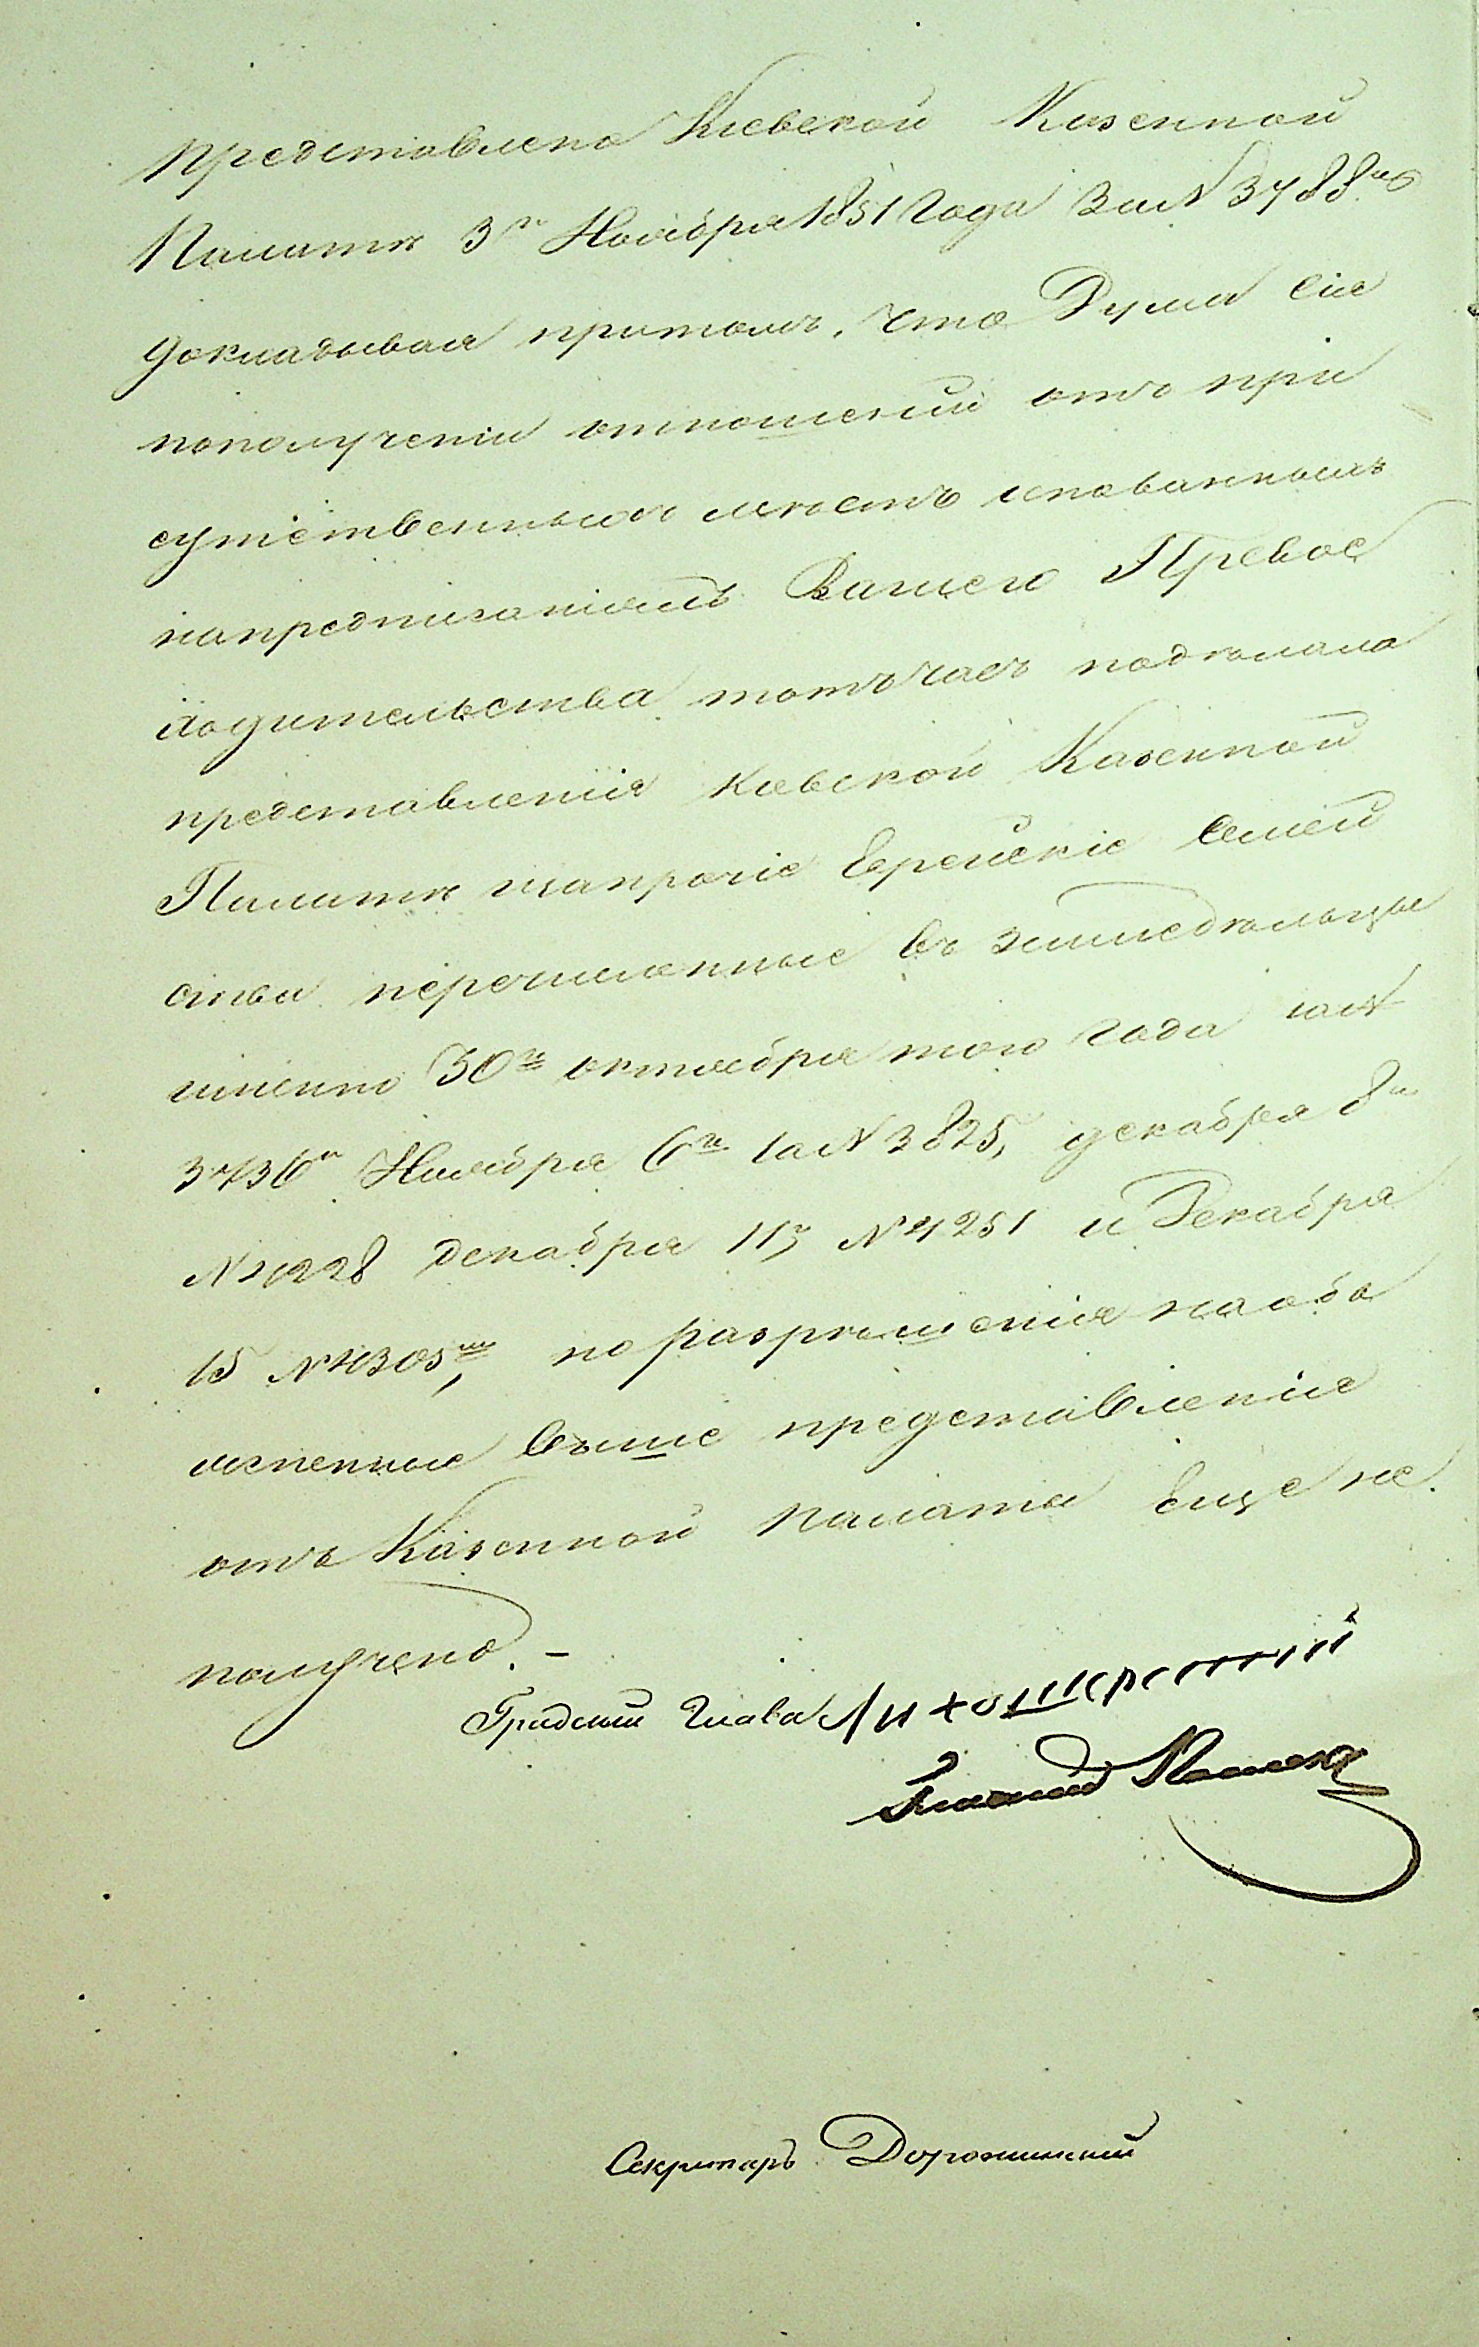 представлено Кіевской Казенной
Палатѣ 3го Ноября 1851 года за N 3788мъ
докладывая притомъ, что Дума сія
пополученіи отношеній отъ при
сутственныхъ мѣстъ
напредписаніямъ Вашего Превос
ходительства тотъ часъ
представленія Кіевской Казенной
Палатѣ напрочіе Еврейскіе Семей
ства перечисленные въ земледѣльцы
именно 30го октября того года за N
3736м Ноября 6го за N 3825, декабря 8го
N 4228 декабря 11го N 4251 и Декабря
15 N 4305мъ, но разрѣшенія наозна
мененные выше представленія
отъ Казенной Палаты еще не
получено. —
Градскій Глава Лихошерстій
Гласный
Секретаръ Дорожинскій